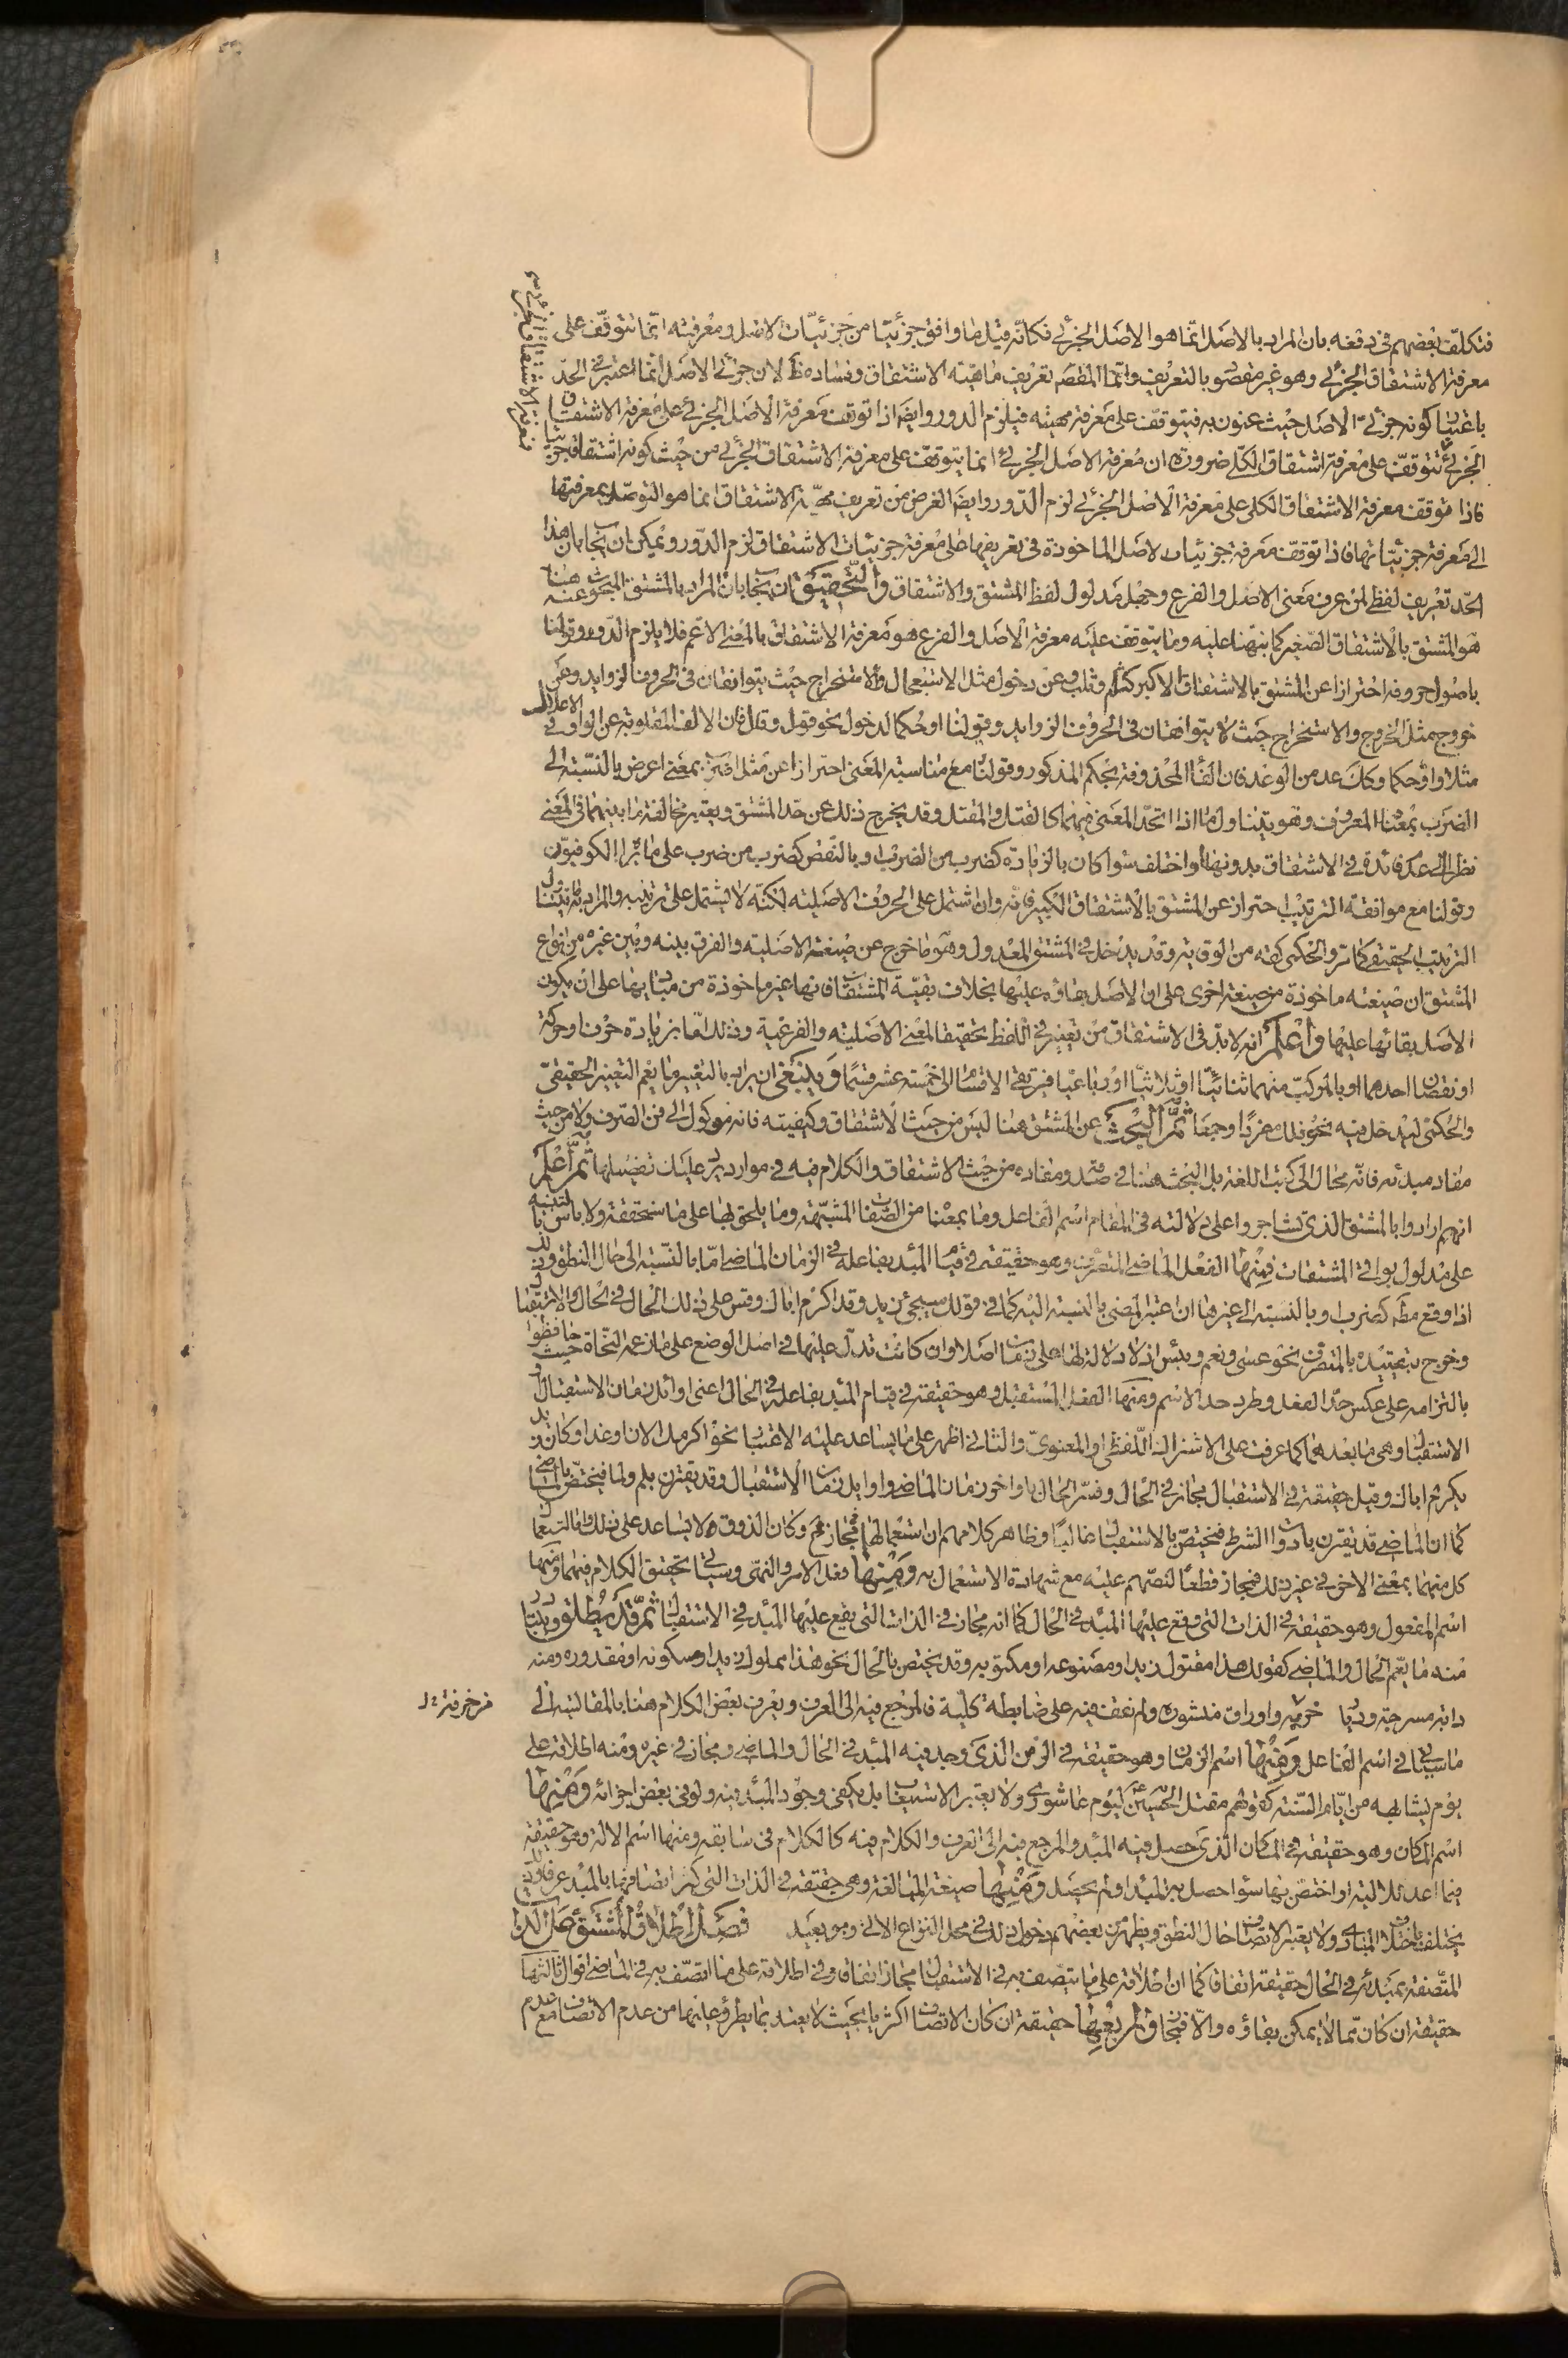 فتكلف بعضهم فى دفعه بان المراد بالاصل انما هو الاصل الجزئى فكانه قيل ما وافق جزئيا من جزئيات الاصل ومعرفته انما تتوقف على
معرفة الاشتقاق الجزئى وهو غير مقصو بالتعريف وانما المقصَ تعريف ماهية الاشتقاق وفساده ظَ لان جزئى الاصل انما اعتبر فى الحدّ
باعتبا كونه جزئى الاصل حيث عنون به فيتوقف على معرفة مهيته فيلزم الدور وايضَ اذا توقف معرفة الاصل الجزئى على معرفة الاشتقاق
الجزئى تتوقف على معرفة اشتقاق الكلى ضرورة ان معرفة الاصل الجزئى انما يتوقف على معرفة الاشتقاق الجزئى من حيث كونه اشتقاقا جزئيا
فاذا توقف معرفة الاشتقاق الكلى على معرفة الاصل الجزئى لزم الدور وايضَ الغرض من تعريف مهية الاشتقاق انما هو التوصل بمعرفتها
الى معرفة جزئياتها فاذا توقف معرفة جزئيات الاصل الماخوذة فى تعريفها على معرفة جزئيات الاشتقاق لزم الدور ويمكن ان يجاب بان هذا
الحد تعريف لفظى لمن عرف معنى الاصل والفرع وجهل مدلول لفظ المشتق والاشتقاق والتحقيق ان يجاب بان المراد بالمشتق المبحوث عنه هنا
هو المشتق بالاشتقاق الصغير كما نبهنا عليه وما يتوقف عليه معرفة الاصل والفرع هو معرفة الاشتقاق بالمعنى الاعم فلا يلزم الدور وقولنا
باصول حروفه احترازا عن المشتق بالاشتقاق الاكبر كثلم وثلب وعن دخول مثل الاستعمال والاستخراج حيث يتوافقان فى الحروف الزوايد وعن
خروج مثل الخروج والاستخراج حيث لا يتوافقان فى الحروف الزوايد وقولنا او حكما لدخول نحو قول وقال فان الالف المقلوبة عن الواو فى الاعلال
مثلا واو حكما وكك عد من الوعد فان الفا المحذوفة بحكم المذكور وقولنا مع مناسبة المعنى احترازا عن مثل اضرب بمعنى اعرض بالنسبة الى
الضرب بمعنا المعروف وهو يتناول ما اذا اتحد المعنى فيهما كالقتل والمقتل وقد يخرج ذلك عن حد المشتق ويعتبر مخالفة ما بينهما فى المعنى
نظرا الى عدم فائدة فى الاشتقاق بدونها واختلف سوا كان بالزيادة كضرب من الضرب او بالنقص كضرب من ضرب على ما يراه الكوفيون
وقولنا مع موافقة الترتيب احتراز عن المشتق بالاشتقاق الكبير فانه وان اشتمل على الحروف الاصلية لكنه لا يشتمل على ترتيبه والمراد به ما يتناول
الترتيب الحقيقى كما مر والحكمى كقه من الوقاية وقد يدخل فى المشتق المعدول وهو ما خرج عن صيغة الاصلية والفرق بينه وبين غيره من انواع
المشتق ان صيغته ماخوذة من صيغة اخرى على ان الاصل بقاؤه عليها بخلاف بقية المشتقات فانها غير ماخوذة من مباديها على ان يكون
الاصل بقائها عليها واعلم انه لا بد فى الاشتقاق من تغيير فى اللفظ تحقيقا لمعنى الاصلية والفرعية وذلك اما بزيادة حرف او حركة
او نقصان احدهما او بالمركب منهما ثنائيا او ثلاثيا او رباعيا فيرتقى الاقسام الى خمسة عشر قسما وينبغى ان يراد بالتغيير ما يعم التغيير الحقيقى
والحكمى ليدخل فيه نحو فلك مفردا وجمعا ثم البحث عن المشتق هنا ليس من حيث الاشتقاق وكيفيته فانه موكول الى فن الصرف ولا من حيث
مفاد مبدئه فانه محال الى كتب اللغة بل البحث هنا فى صدقه ومفاده من حيث الاشتقاق والكلام فيه فى موارد يرد عليك تفصيلها ثم اعلم
انهم ارادوا بالمشتق الذى تشاجروا على دلالته فى المقام اسم الفاعل وما بمعنا من الصفات المشبهة وما يلحق بها على ما سنحققه ولا باس بالتنبيه
على مدلول بواقى المشتقات فمنها الفعل الماضى المتصرف وهو حقيقة فى قيام المبدء بفاعله فى الزمان الماضى اما بالنسبة الى حال النطق وذلك
اذا وقع مطَ كضرب او بالنسبة الى غيرها ان اعتبر المضى بالنسبة اليه كما فى قولك سيجئ زيد وقد اكرم اباك وقس على ذلك الحال فى الحال والاستقبال
وخرج بتقييده بالمتصرف نحو عسى ونعم وبئس اذ لا دلالة لها على زمان اصلا وان كانت تدل عليها فى اصل الوضع على ما زعمه النحاة حيث حافظوا
بالتزامه على عكس حد الفعل وطرد حد الاسم ومنها الفعل المستقبل وهو حقيقة فى قيام المبدء بفاعله فى الحال اعنى اوائل زمان الاستقبال او فى
الاستقبال وهى ما بعدهما كما عرفت على الاشتراك اللفظى او المعنوى والثانى اظهر على ما يساعد عليه الاعتبا نحو اكرمك الان او غدا وكان زيد
يكرم اباك وقيل حقيقة فى الاستقبال مجاز فى الحال وفسر الحال باواخر زمان الماضى واوايل زمان الاستقبال وقد يقترن بلم ولما فيختص بالماضى
كما ان الماضى قد يقترن بادوات الشرط فيختص بالاستقبال غالبا وظاهر كلامهم ان استعمالها مجاز وكان الذوق لا يساعد على ذلك واما استعمال
كل منهما بمعنى الاخر فى غير ذلك فمجاز قطعا لنصهم عليه مع شهادة الاستعمال به ومنها فعل الامر والنهى وسياتى تحقيق الكلام فيهما ومنها
اسم المفعول وهو حقيقة فى الذات التى وقع عليها المبدء فى الحال كما انه مجاز فى الذات التى يقع عليها المبدء فى الاستقبال ثم قد يطلق ويراد
منه ما يعم الحال والماضى كقولك هذا مقتول زيد او مصنوعه او مكتوبه وقد يختص بالحال نحو هذا مملوك زيد او مسكونه او مقدوره ومنه
دابة مسرجة ودنيا خربة واوراق منشوره ولم نقف فيه على ضابطة كلية فالمرجع فيه الى العرف ويعرف بعض الكلام هنا بالمقايسة الى
مزخرفة
ما سياتى فى اسم الفاعل ومنها اسم الزمان وهو حقيقة فى الزمن الذى وجد فيه المبدء فى الحال والماضى ومجاز فى غيره ومنه اطلاقه على
يوم يشابهه من ايام السنة كقولهم مقتل الحسين ع ليوم عاشورى ولا يعتبر الاستيعاب بل يكفى وجود المبدء فيه ولو فى بعض اجزائه ومنها
اسم المكان وهو حقيقة فى المكان الذى حصل فيه المبدء والمرجع فيه الى العرف والكلام فيه كالكلام فى سابقه ومنها اسم الالة وهو حقيقة
فيما اعد للالية او اختص بها سواء حصل به المبدء او لم يحصل ومنها صيغة المبالغة وهى حقيقة فى الذات التى كثر اتصافها بالمبدء عرفا
يختلف باختلاف المبادى ولا يعتبر الاتصاف حال النطق ويظهر من بعضهم دخول ذلك فى محل النزاع الاتى وهو بعيد فصل اطلاق المشتق على الذات
المتصفة بمبدئه فى الحال حقيقة اتفاقا كما ان اطلاقه على ما يتصف به فى الاستقبال مجاز اتفاقا وفى اطلاقه على ما اتصف به فى الماضى اقوال ثالثها
حقيقة ان كان مما لا يمكن بقاؤه والا فمجاز ورابعها حقيقة ان كان الاتصاف اكثريا بحيث لا يعتد بما يطرؤ عليها من عدم الاتصاف مع عدم